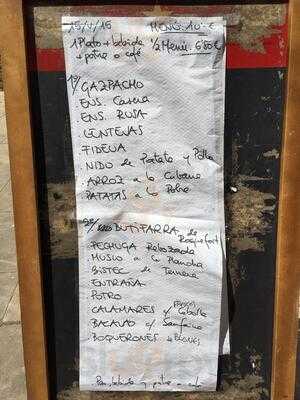 15/4/16 MENÚ: 10'- €
1 Plato + bebida 1/2 Menú 6'50€
+ postre o café
1º/ GAZPACHO
ENS. Casera
ENS. RUSA
LENTEJAS
FIDEUA
NIDO de Patata y Pollo
ARROZ a la Cubana
PATATAS a lo Pobre
2º/ BUTIFARRA, de
Roquefort
PECHUGA Rebozada
MUSLO a la Plancha
BISTEC de Ternera
ENTRAÑA
POTRO
CALAMARES c/ Cebolla
BACALAO c/ Sanfaina
BOQUERONES
Pan, bebida y postre o café